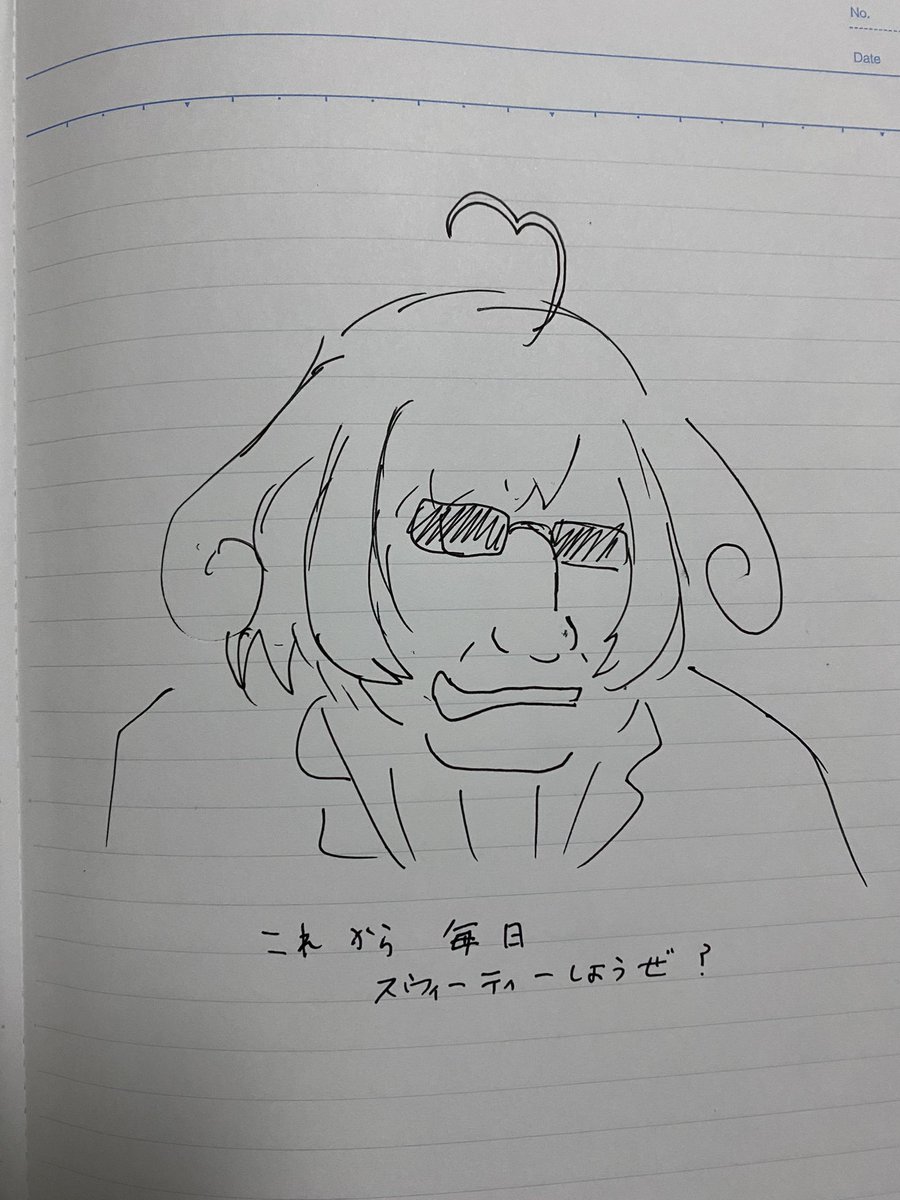 No.
Date
これから 毎日
スウィーティーしようぜ?